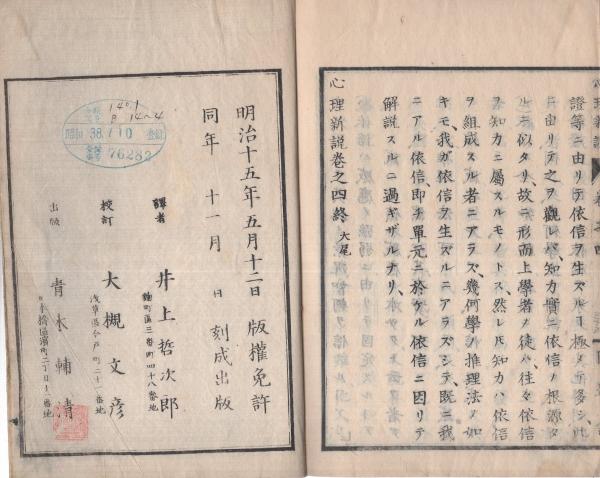 證等ニ由リテ依信ヲ生ズルヿ極メテ多シ、此
ニ由リテ之ヲ觀レバ、知力實ニ依信ノ根源タ
ルニ似タリ、故ニ形而上學者ノ徒ハ、往々依信
ヲ知力ニ屬スルモノトス、然レ𪜈知力ハ依信
ヲ組成スル者ニアラズ、幾何學ノ推理法ノ如
キモ、我ガ依信ヲ生ズルニアラズシテ、既ニ我
ニアル依信即チ單元ニ於ケル依信ニ因リテ
解説スルニ過ギザルナリ、
心理新説卷之四終 大尾
明治十五年五月十二日 版權免許
同年 十一月 日 刻成出版
譯者 井上哲次郎
麹町區三番町四十八番地
校訂 大槻文彦
淺草區 町二十一番地
出版 青木輔清
日本橋區濱町二丁目 番地
1401
8 14~4
昭和 38.7.10 登録
76282